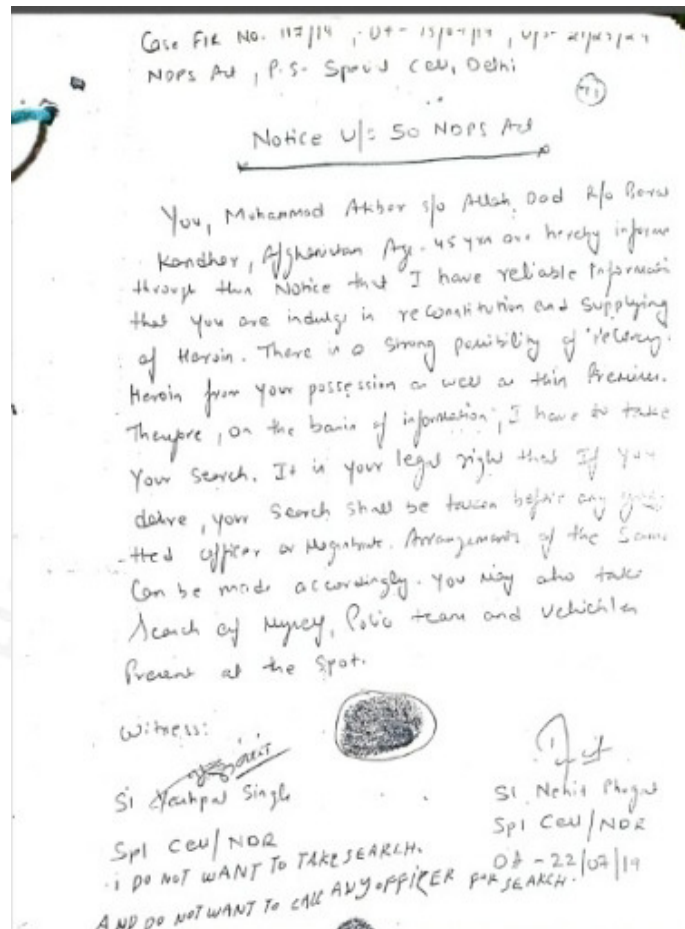 Case FIR No. 117/19, Dt-
NDPS Act, P.S- Special Cell, Delhi
Notice U/s 50 NDPS Act
You, Mohammad Akbar s/o Allah Dad R/o
Kandhar, Afghanistan Age. 45 yrs are hereby informe
through this Notice that I have reliable Informati
that you are indulge in reconstitution and Supplying
of Heroin. There is a strong possibility of recovery
Heroin from your possession as well as this Premises.
Therefore, on the basis of information, I have to take
Your Search. It is your legal right that If you
desire, your Search shall be taken before any
-tted officer or Magistrate. Arrangements of the Same
Can be made accordingly. You may also take
Search of Myself, Police team and vehicles
Present at the Spot.
Witness:
SI Yashpal Singh
SI
Spl Cell/NDR
Spl Cell/NDR
Dt - 22/07/19
i DO NOT WANT TO TAKE SEARCH.
AND DO NOT WANT TO CALL ANY OFFICER FOR SEARCH.